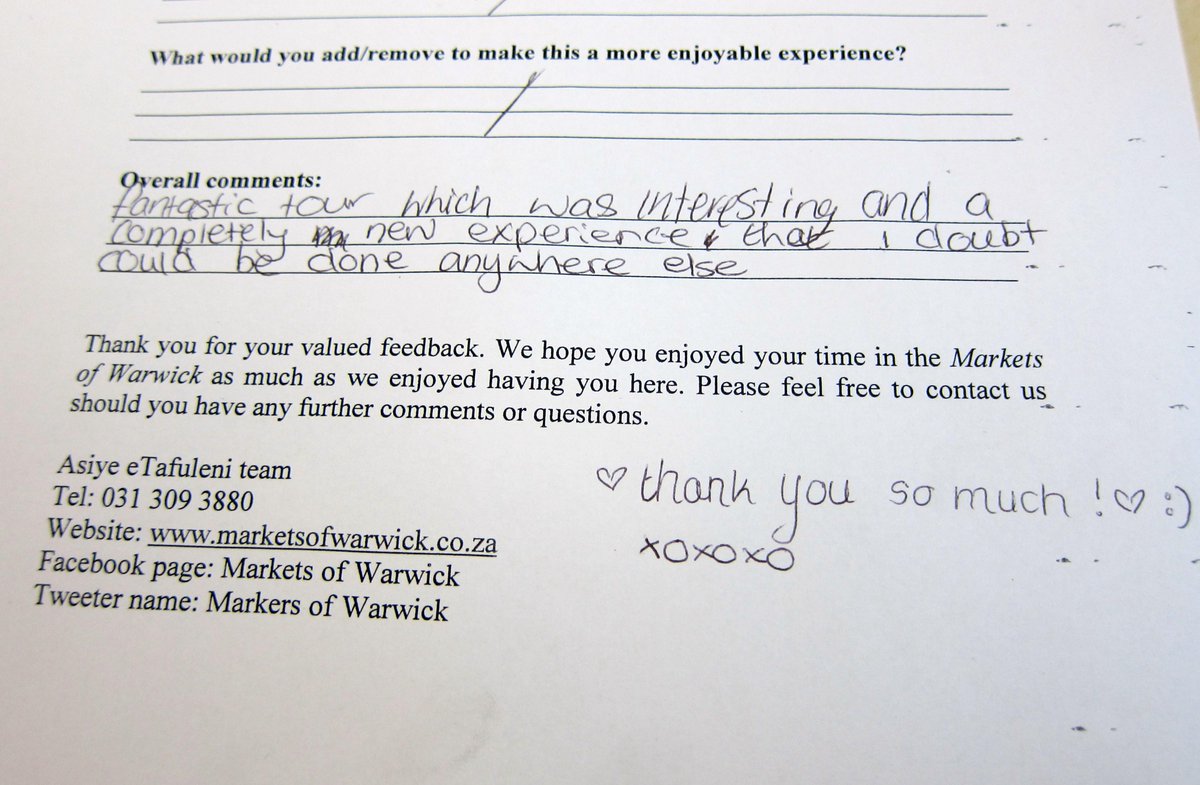 What would you add/remove to make this a more enjoyable experience?
/
Overall comments:
fantastic tour which was interesting and a
completely new experience that i doubt
could be done anywhere else
Thank you for your valued feedback. We hope you enjoyed your time in the Markets
of Warwick as much as we enjoyed having you here. Please feel free to contact us
should you have any further comments or questions.
Asiye eTafuleni team
Tel: 031 309 3880
Website: www.marketsofwarwick.co.za
Facebook page: Markets of Warwick
Tweeter name: Markers of Warwick
♡ thank you so much !♡ :)
xoxoxo